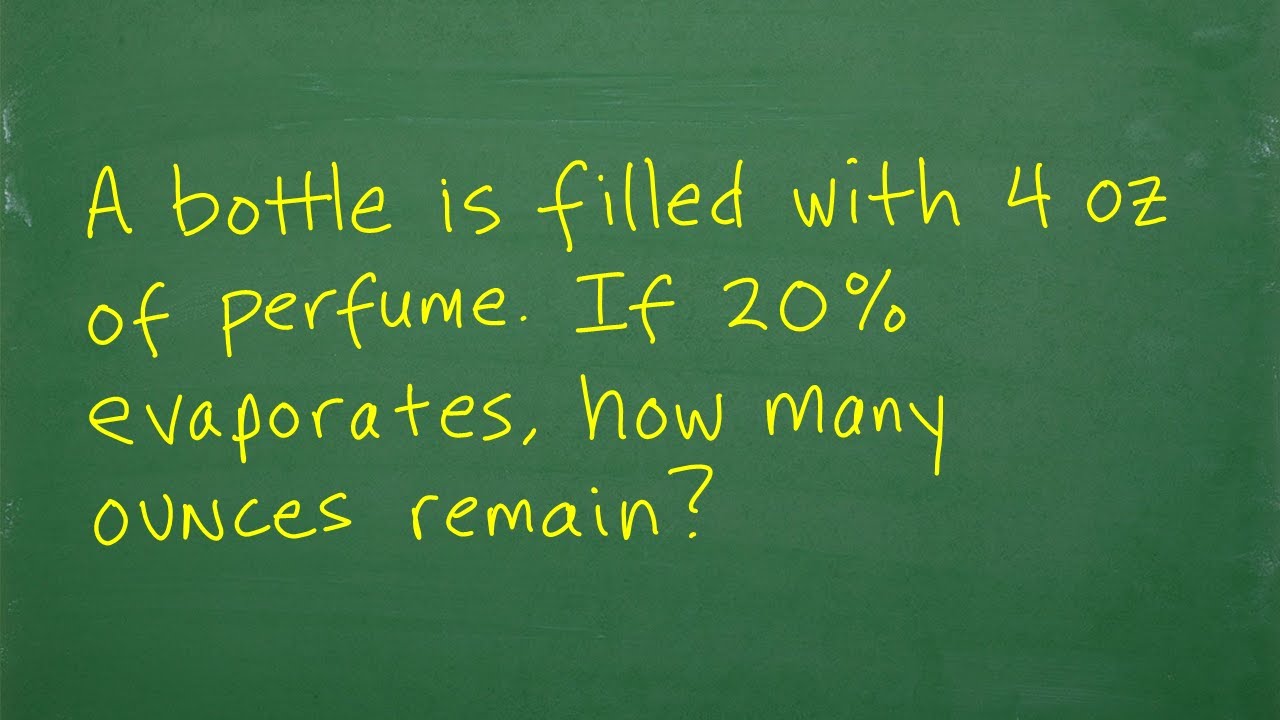 A bottle is filled with 4 oz
of perfume. If 20%
evaporates, how many
ounces remain?